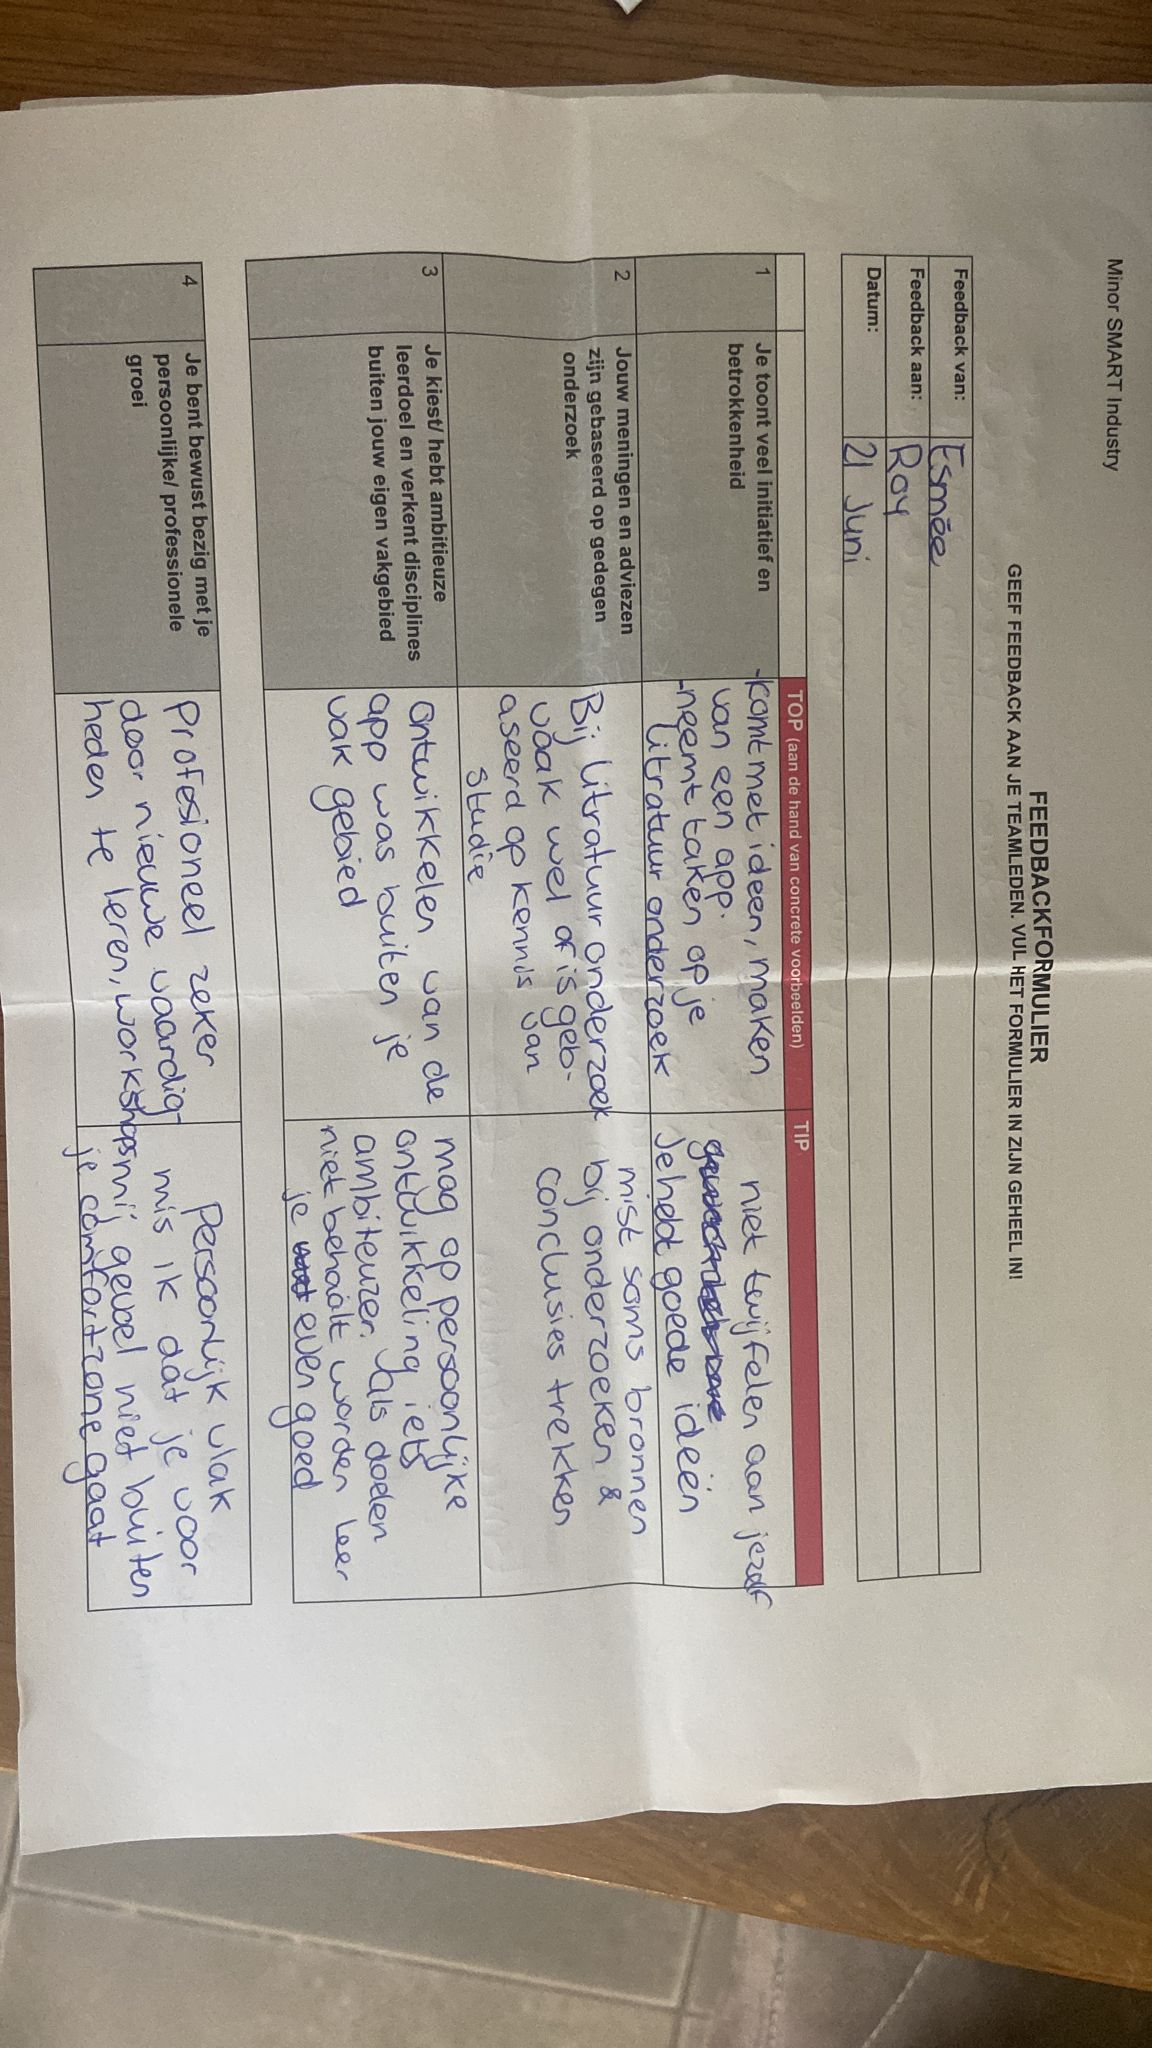 Minor SMART Industry
FEEDBACKFORMULIER
GEEF FEEDBACK AAN JE TEAMLEDEN. VUL HET FORMULIER IN ZIJN GEHEEL IN!
Feedback van: Esmée
Feedback aan: Roy
Datum: 21 Juni
TOP (aan de hand van concrete voorbeelden)
TIP
1
Je toont veel initiatief en
betrokkenheid
-komt met ideen, maken
van een app.
-neemt taken op je
litratuur onderzoek
niet twijfelen aan jezelf
Je hebt goede ideeën
2
Jouw meningen en adviezen
zijn gebaseerd op gedegen
onderzoek
Bij litratuur onderzoek
vaak wel of is geb-
aseerd op kennis van
studie
mist soms bronnen
bij onderzoeken &
conclusies trekken
3
Je kiest/ hebt ambitieuze
leerdoel en verkent disciplines
buiten jouw eigen vakgebied
ontwikkelen van de
app was buiten je
vak gebied
mag op persoonlijke
ontwikkeling iets
ambiteuzer. Als doelen
niet behaalt worden leer
je even goed
4
Je bent bewust bezig met je
persoonlijke/ professionele
groei
Profesioneel zeker
door nieuwe vaardig-
heden te leren, workshops
Persoonlijk vlak
mis ik dat je voor
mij gevoel niet buiten
je comfortzone gaat